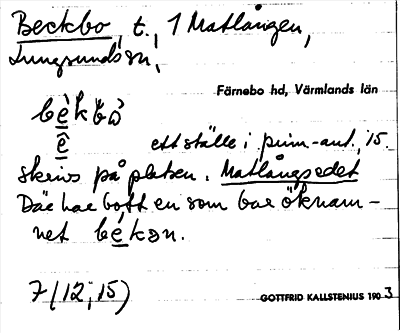 Beckbo, t., 1 Matlången,
Lungsundssn,
Färnebo hd, Värmlands län
bèkbò
ê
ett ställe i prim-ant. 15.
skrivs på platsen. Matlångsedet
Där har bott en som bar öknam-
net békən.
7 (12; 15)
GOTTFRID KALLSTENIUS 1903